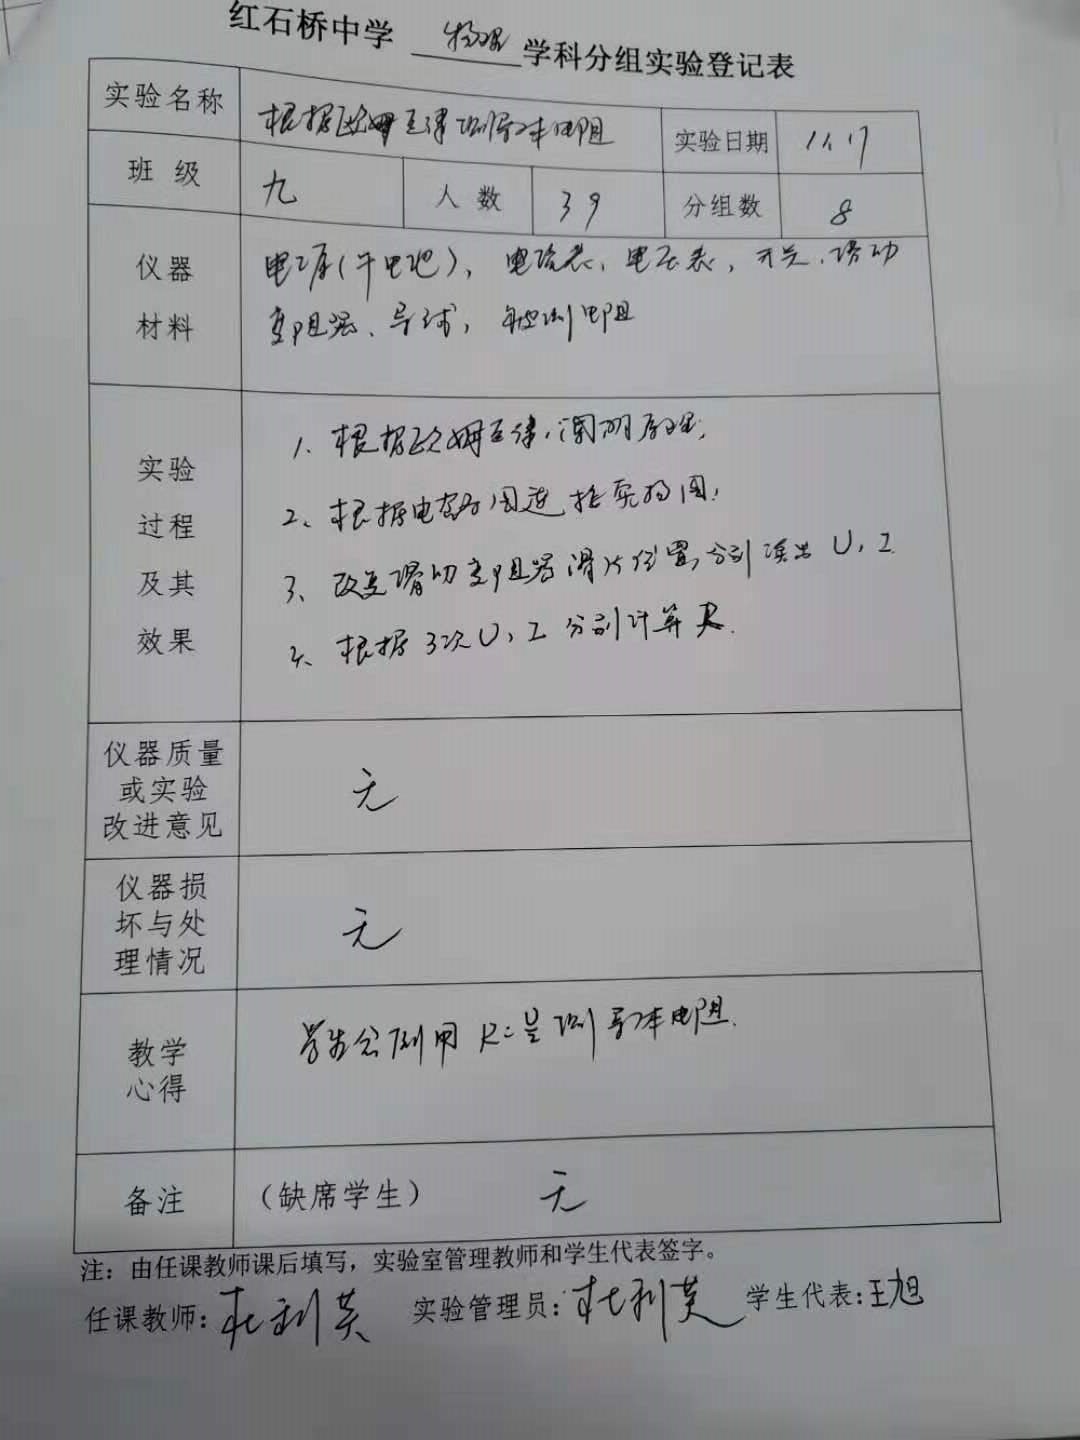 红石桥中学 物理 学科分组实验登记表
实验名称 根据欧姆定律测导体电阻 实验日期 11.17
班级 九 人数 39 分组数 8
仪器材料 电源(干电池)、电流表、电压表、开关、滑动
变阻器、导线、被测电阻
实验过程及其效果
1、根据欧姆定律,阐明原理,
2、根据电路图连接实物图,
3、改变滑动变阻器滑片位置,分别读出U、I
4、根据3次U、I分别计算R.
仪器质量或实验改进意见 无
仪器损坏与处理情况 无
教学心得 学生会利用R=U/I测导体电阻.
备注 (缺席学生) 无
注:由任课教师课后填写,实验室管理教师和学生代表签字。
任课教师:杜利英 实验管理员:杜利英 学生代表:王旭